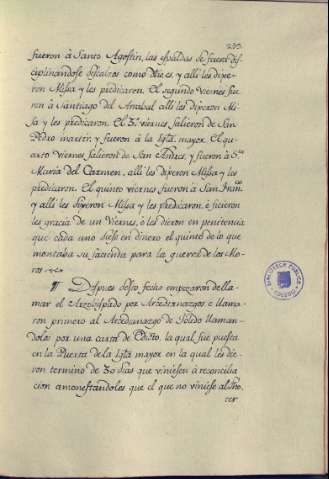 235.
fueron à Santo Agostin, las espaldas de fuera dis-
ciplinandose descalzos como dho es, y alli les dixe-
ron Misa y les predicaron. El segundo viernes fue-
ron à Santiago del Arrabal alli les dixeron Mi-
sa y les predicaron. El 3.º viernes salieron de San
Pedro martir, y fueron à la Igl.ª mayor. El qu-
arto Viernes salieron de San Andres, y fueron à S.ta
Maria del Carmen, alli les dixeron Misa y les
predicaron. El quinto viernes fueron à San Juan
y alli les dixeron Misa y les predicaron, è ficieron
les gracia de un Viernes, è les dieron en penitencia
que cada uno diese en dinero el quinto de lo que
montaba su facienda para la guerra de los Mo-
ros
¶ Despues desto fecho empezaron de lla-
mar el Arzobispado por Arzedianazgos è llama-
ron primero al Arzedianazgo de Toledo llaman-
dolos por una carta de Edicto, la qual fue puesta
en la Puerta de la Igl.ª mayor en la qual les die-
ron termino de 30 dias que viniesen à reconcilia-
cion amonestandolos que el que no viniese al
cer
BIBLIOTECA PUBLICA
TOLEDO